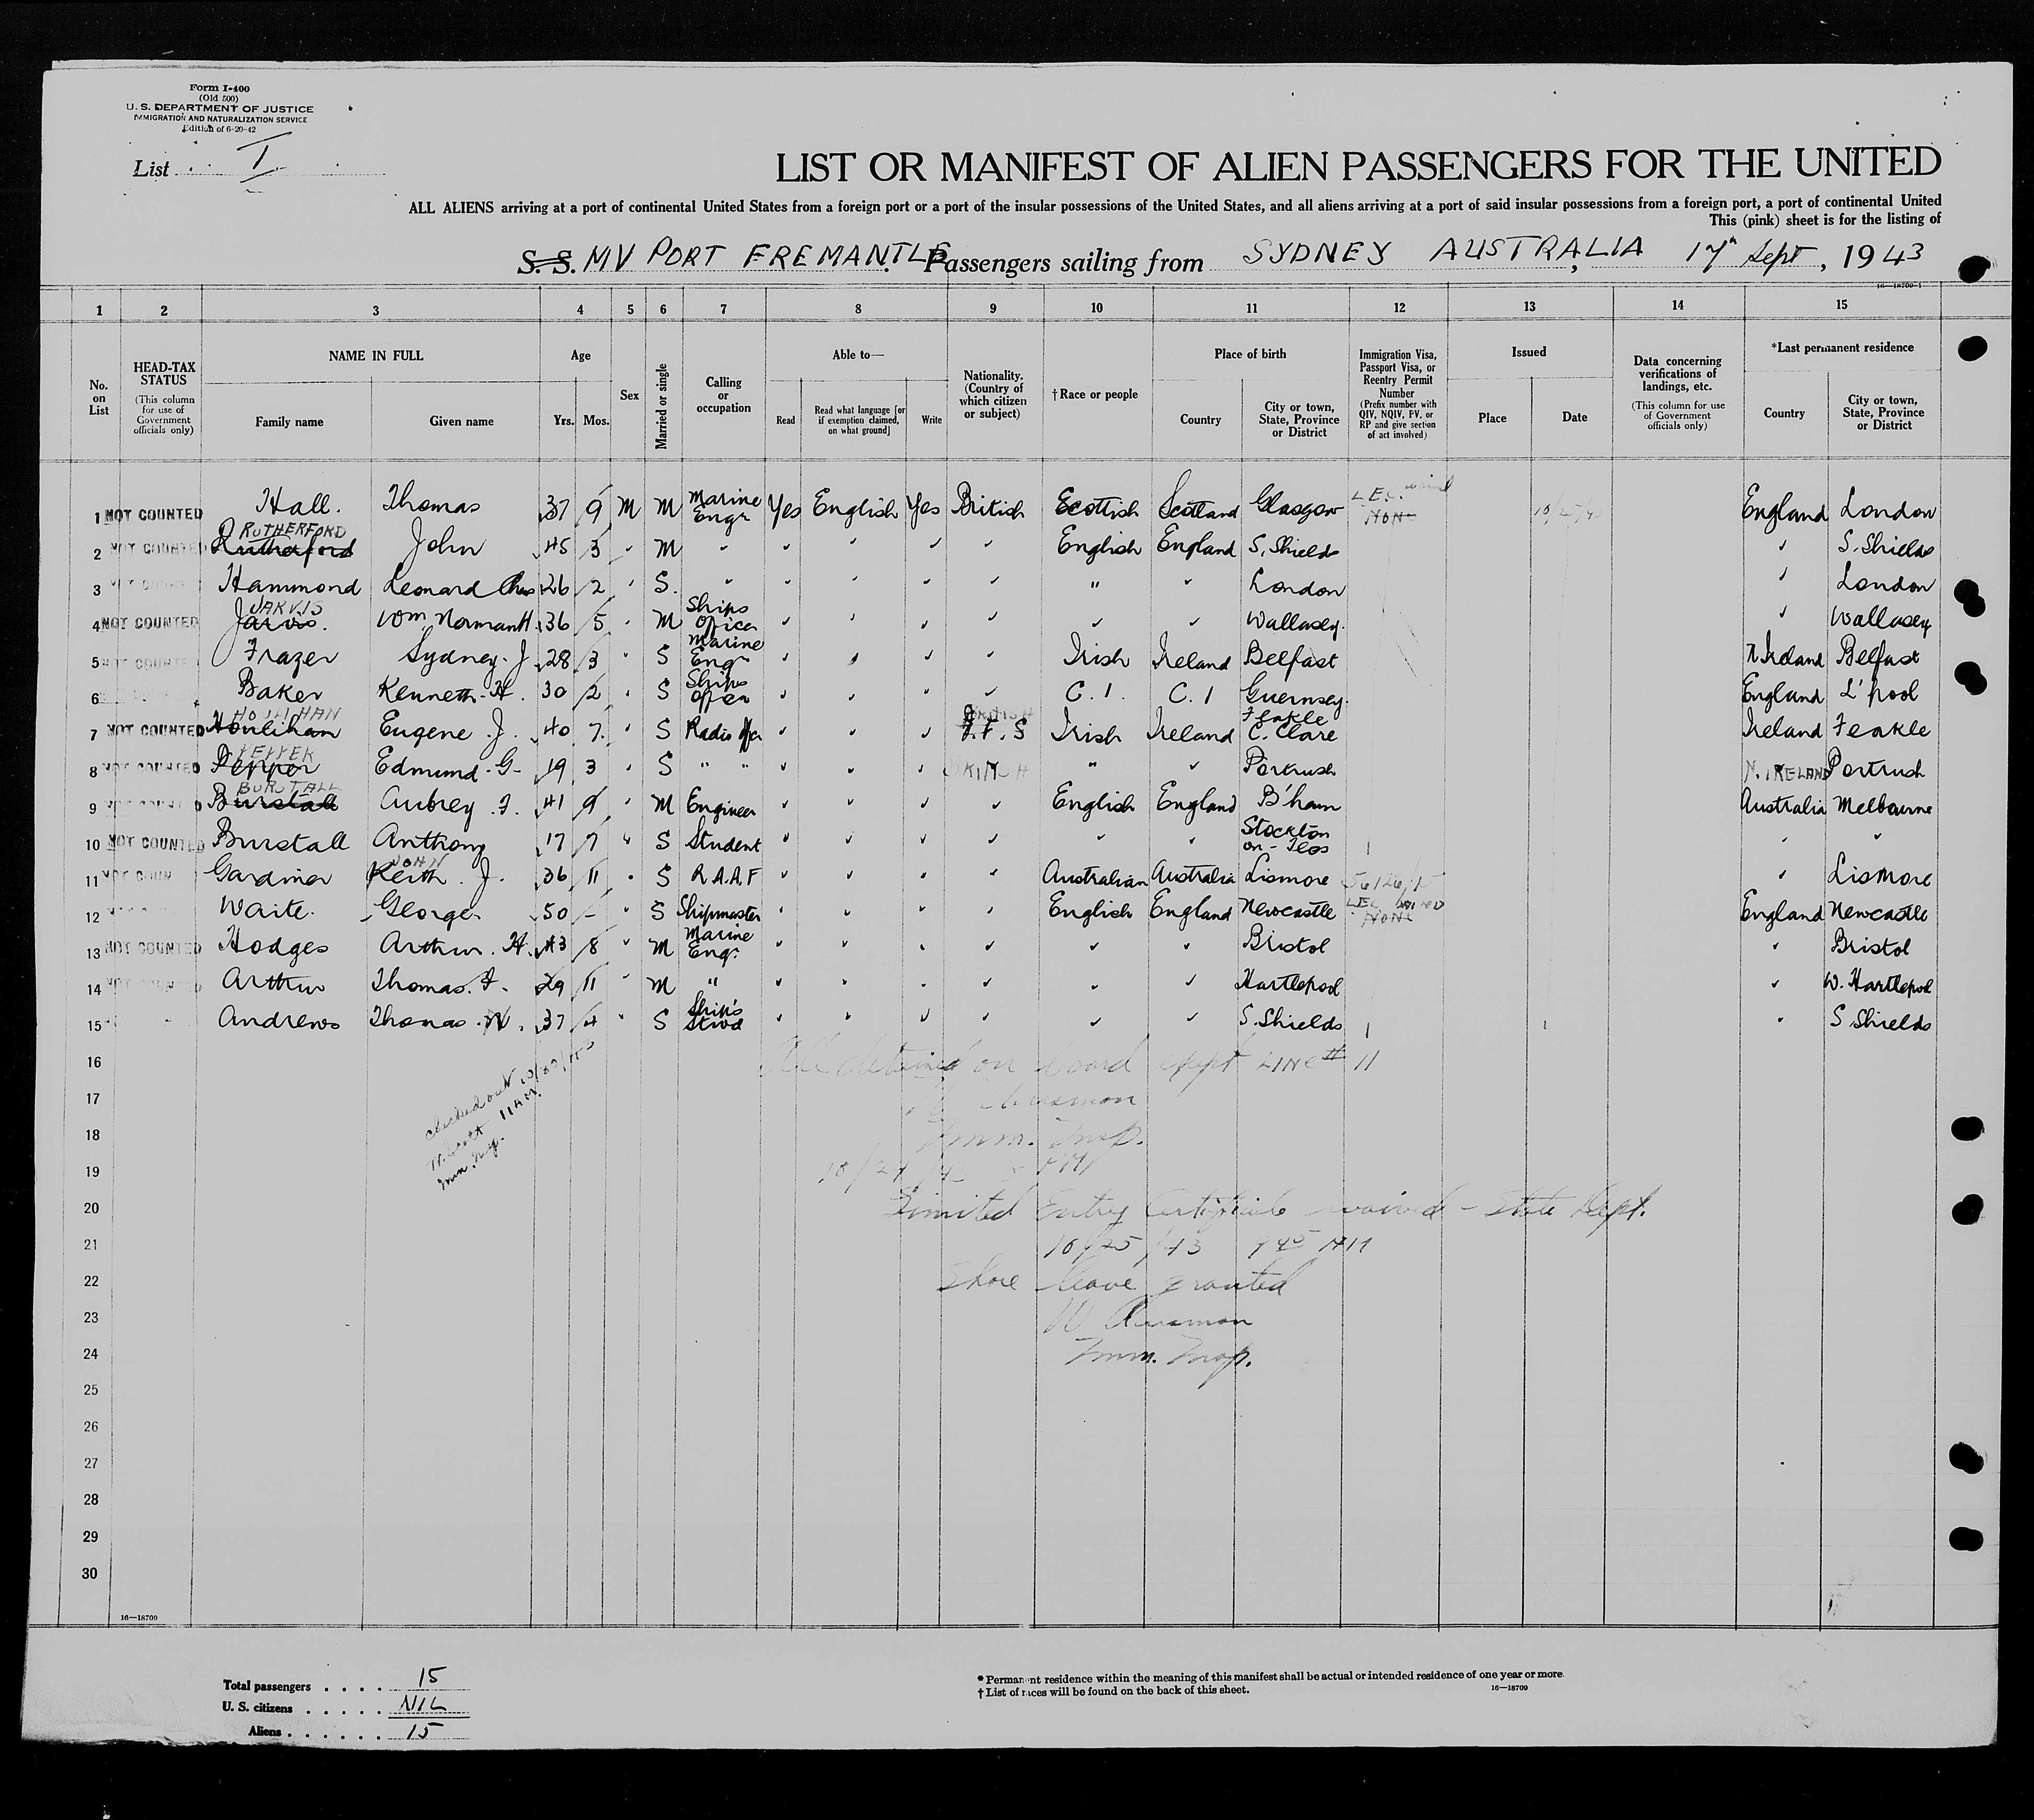 Form I-400
(Old 500)
U. S. DEPARTMENT OF JUSTICE
IMMIGRATION AND NATURALIZATION SERVICE
Edition of 6-20-42
List I
LIST OR MANIFEST OF ALIEN PASSENGERS FOR THE UNITED
ALL ALIENS arriving at a port of continental United States from a foreign port or a port of the insular possessions of the United States, and all aliens arriving at a port of said insular possessions from a foreign port, a port of continental United
This (pink) sheet is for the listing of
S. S. MV PORT FREMANTLE Passengers sailing from SYDNEY AUSTRALIA, 17th Sept, 1943
16—18709-1
1 2 3 4 5 6 7 8 9 10 11 12 13 14 15
No. on List
HEAD-TAX STATUS (This column for use of Government officials only)
NAME IN FULL Family name Given name
Age Yrs. Mos.
Sex
Married or single
Calling or occupation
Able to— Read Read what language [or if exemption claimed, on what ground] Write
Nationality. (Country of which citizen or subject)
†Race or people
Place of birth Country City or town, State, Province or District
Immigration Visa, Passport Visa, or Reentry Permit Number (Prefix number with QIV, NQIV, PV, or RP and give section of act involved)
Issued Place Date
Data concerning verifications of landings, etc. (This column for use of Government officials only)
*Last permanent residence Country City or town, State, Province or District
1 NOT COUNTED Hall. Thomas 37 9 M M Marine Engr Yes English Yes British Scottish Scotland Glasgow LEC. waived NONE 10/25/43 England London
RUTHERFORD
2 NOT COUNTED Rutherford John 45 3 " M " " " " " English England S. Shields " S. Shields
3 NOT COUNTED Hammond Leonard Chas 26 2 " S. " " " " " " " London " London
JARVIS
4 NOT COUNTED Jarvis. Wm Norman H. 36 5 " M Ships Officer " " " " " " Wallasey. " Wallasey
5 NOT COUNTED Frazer Sydney. J 28 3 " S Marine Engr " " " " Irish Ireland Belfast N Ireland Belfast
6 Baker Kenneth. H. 30 2 " S Ships Officer " " " " C. I. C. I Guernsey. England L'pool
HOULIHAN BRITISH
7 NOT COUNTED Houlihan Eugene. J. 40 7. " S Radio Ofcr " " " I. F. S Irish Ireland Feakle C. Clare Ireland Feakle
PEPPER
8 NOT COUNTED Pepper Edmund. G. 19 3 " S " " " " " BRITISH " " Portrush N. IRELAND Portrush
BURSTALL
9 NOT COUNTED Burstall Aubrey. F. 41 9 " M Engineer " " " " English England B'ham Australia Melbourne
10 NOT COUNTED Burstall Anthony 17 7 " S Student " " " " " " Stockton on-Tees " "
JOHN
11 NOT COUN Gardiner Keith. J. 36 11 " S R.A.A.F " " " " Australian Australia Lismore " Lismore
12 NOT Waite. George 50 - " S Shipmaster " " " " English England Newcastle LEC WAIVED NONE England Newcastle
13 NOT COUNTED Hodges Arthur. H. 43 8 " M Marine Engr. " " " " " " Bristol " Bristol
14 NOT COUNTED Arthur Thomas. F. 29 11 " M " " " " " " " Hartlepool " W. Hartlepool
15 Andrews Thomas. W. 37 4 " S Ship's Stwd " " " " " " S. Shields " S Shields
16 All detained on board except LINE # 11
17
18 Imm. Insp.
19 10/24/43 PM
20 Limited Entry Certificate waived - State Dept.
21 10/25/43 9 45 AM
22 Shore leave granted
23
24 Imm. Insp.
25
26
27
28
29
30
Checked out
11 AM.
Imm. Insp.
16—18709
Total passengers . . . . 15
U. S. citizens . . . . . NIL
Aliens . . . . . . 15
* Permanent residence within the meaning of this manifest shall be actual or intended residence of one year or more.
† List of races will be found on the back of this sheet.
16—18709